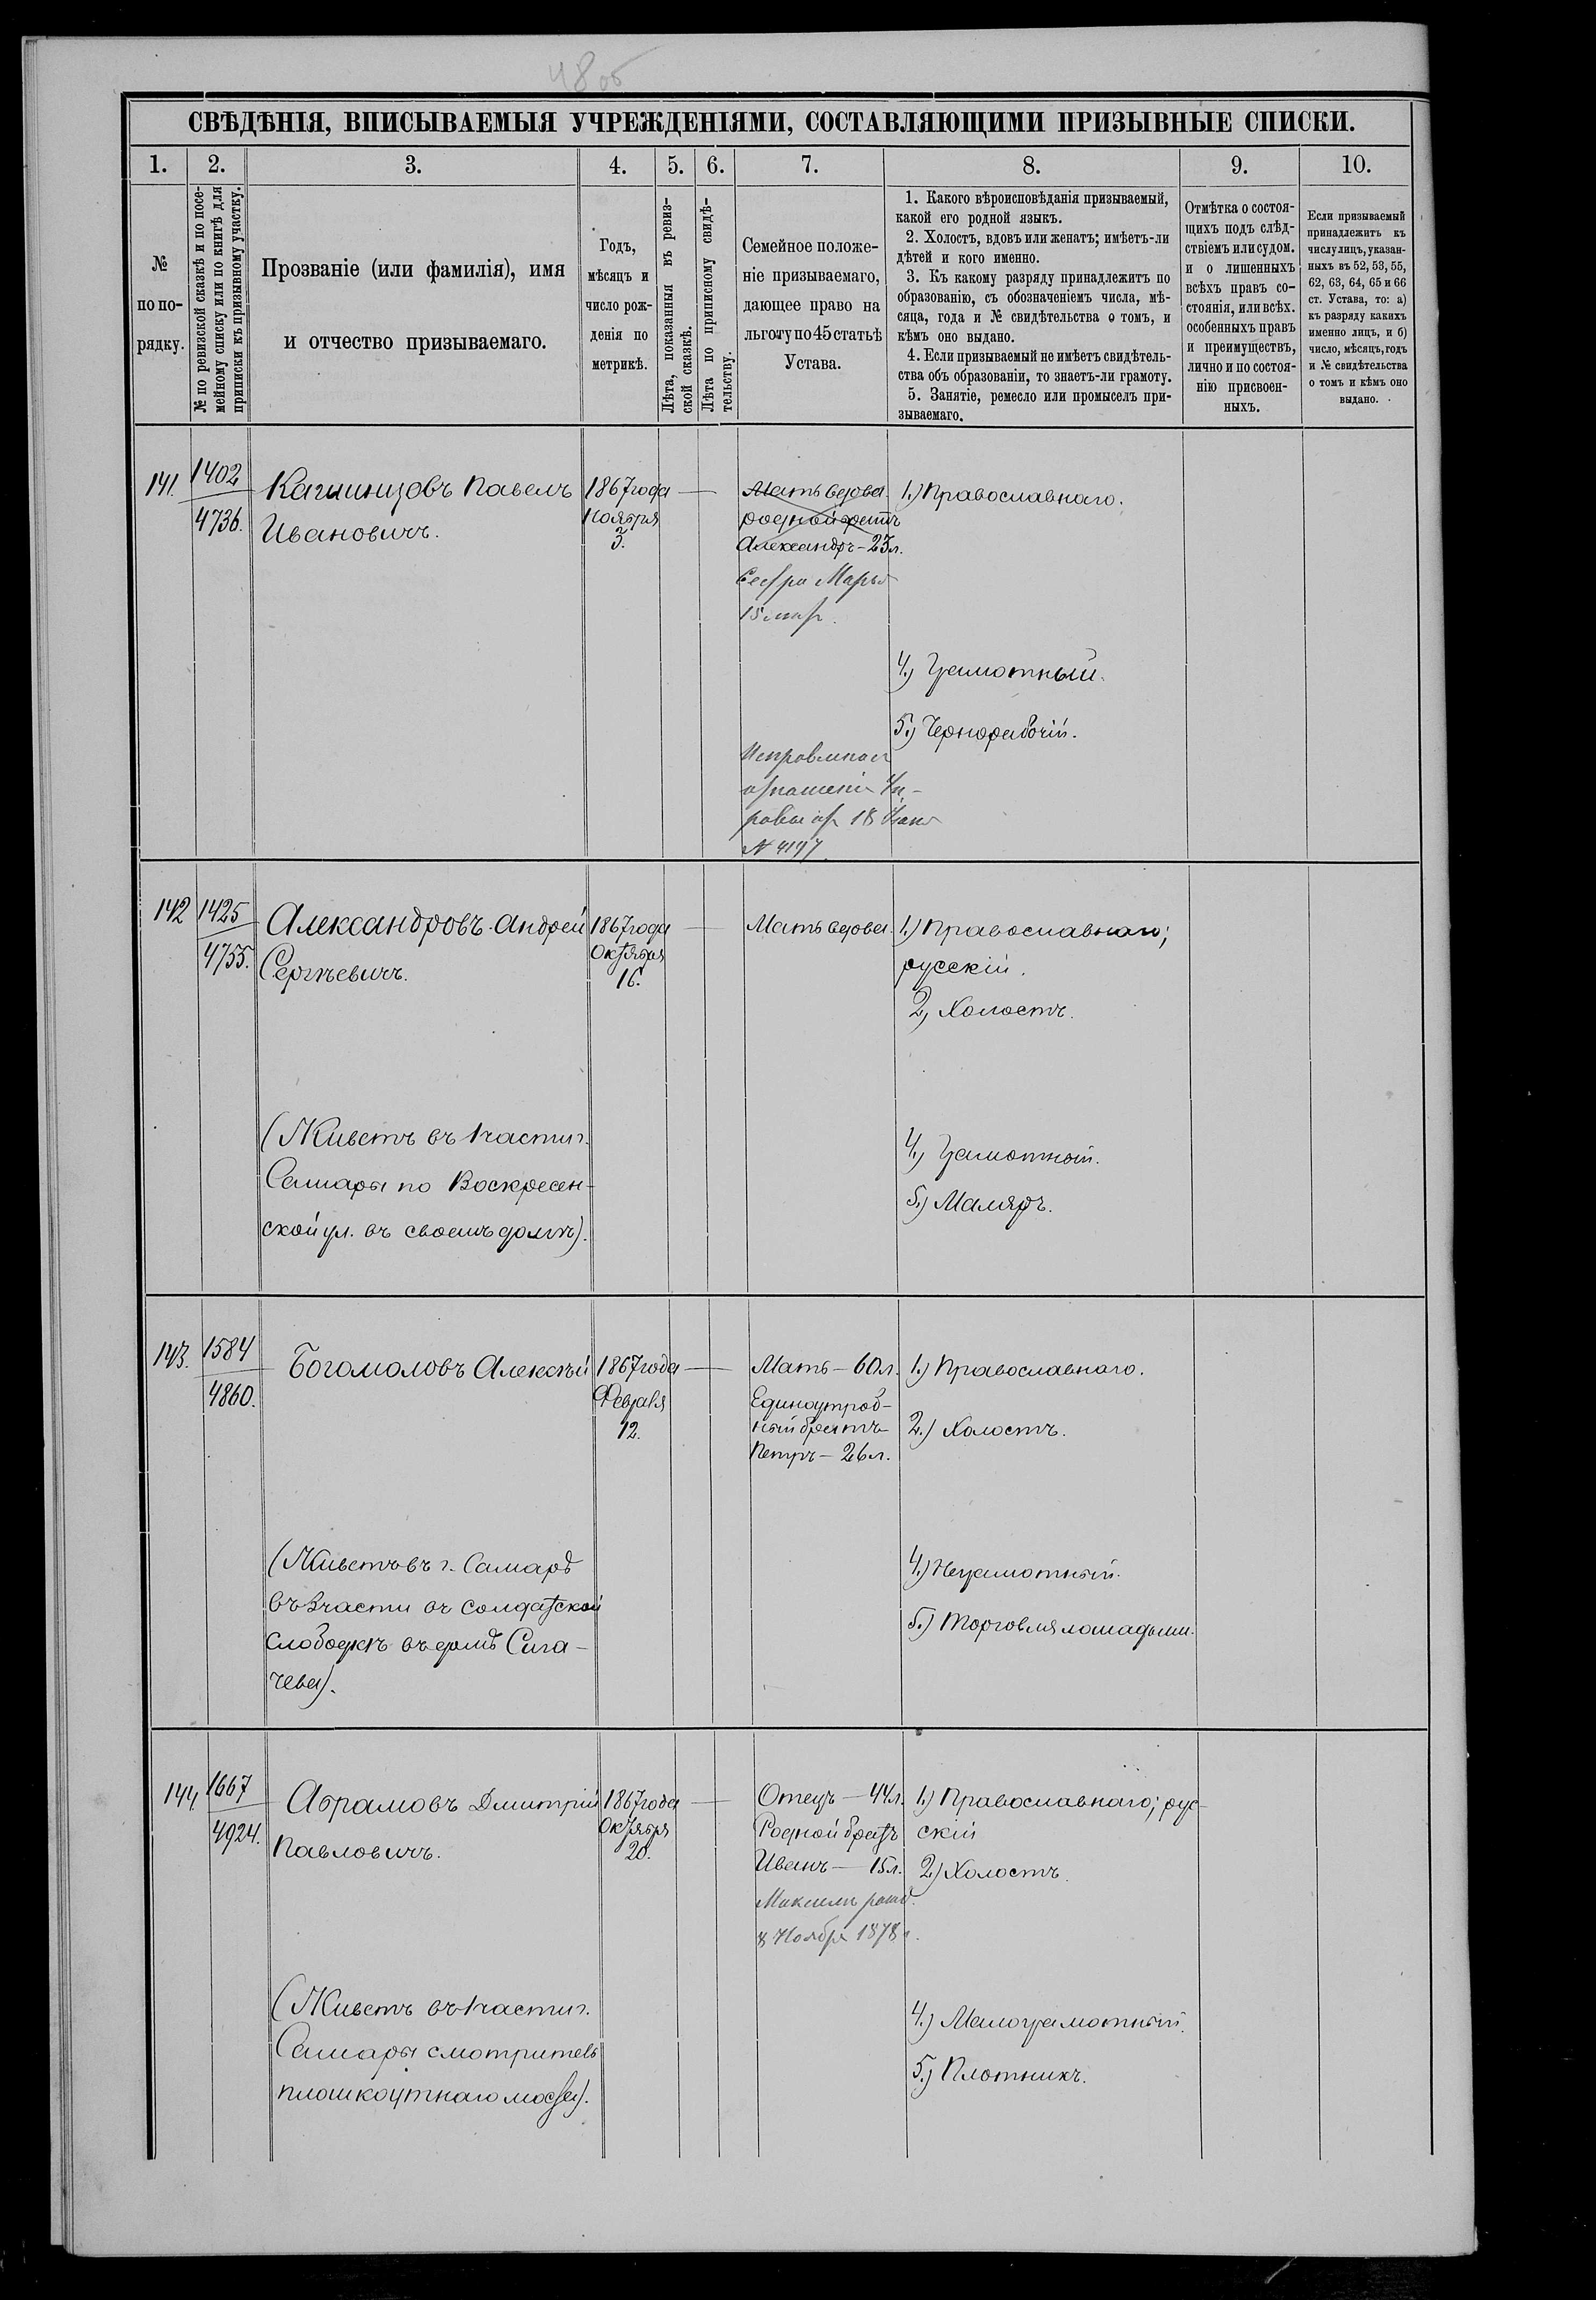 48 об
СВѢДѢНІЯ, ВПИСЫВАЕМЫЯ УЧРЕЖДЕНІЯМИ, СОСТАВЛЯЮЩИМИ ПРИЗЫВНЫЕ СПИСКИ.
1.
2.
3.
4.
5.
6.
7.
8.
9.
10.
№
по по-
рядку.
№ по ревизской сказкѣ и по посе-
мейному списку или по книгѣ для
приписки къ призывному участку.
Прозваніе (или фамилія), имя
и отчество призываемаго.
Годъ,
мѣсяцъ и
число рож-
денія по
метрикѣ.
Лѣта, показанныя въ ревиз-
ской сказкѣ.
Лѣта по приписному свидѣ-
тельству.
Семейное положе-
ніе призываемаго,
дающее право на
льготу по 45 статьѣ
Устава.
1. Какого вѣроисповѣданія призываемый,
какой его родной языкъ.
2. Холостъ, вдовъ или женатъ; имѣетъ-ли
дѣтей и кого именно.
3. Къ какому разряду принадлежитъ по
образованію, съ обозначеніемъ числа, мѣ-
сяца, года и № свидѣтельства о томъ, и
кѣмъ оно выдано.
4. Если призываемый не имѣетъ свидѣтель-
ства объ образованіи, то знаетъ-ли грамоту.
5. Занятіе, ремесло или промыселъ при-
зываемаго.
Отмѣтка о состоя-
щихъ подъ слѣд-
ствіемъ или судом.
и о лишенныхъ
всѣхъ правъ со-
стоянія, или всѣх.
особенныхъ правъ
и преимуществъ,
лично и по состоя-
нію присвоен-
ныхъ.
Если призываемый
принадлежитъ къ
числу лицъ, указан-
ныхъ въ 52, 53, 55,
62, 63, 64, 65 и 66
ст. Устава, то: а)
къ разряду какихъ
именно лицъ, и б)
число, мѣсяцъ, годъ
и № свидѣтельства
о томъ и кѣмъ оно
выдано.
141.
1402
4736.
Павелъ
Ивановичъ.
1867 года
Ноября
3.
Мать вдова.
родной братъ
Александръ - 23 л.
Сестра Марья
15 лѣтъ.
1.) Православнаго.
4.) Грамотный.
5.) Чернорабочій.
18
№ 4197
142
1425
4755.
Александровъ Андрей
Сергѣевичъ.
1867 года
Октября
16.
Мать вдова.
1.) Православнаго;
русскій.
2.) Холостъ.
(Живетъ въ 1 части г.
Самары по Воскресен-
ской ул. въ своемъ домѣ).
4.) Грамотной.
5.) Маляръ.
143.
1584
4860.
Богомоловъ Алексѣй
1867 года
Февраля
12.
Мать - 60 л.
Единоутроб-
ный братъ
Петръ - 26 л.
1.) Православнаго.
2.) Холостъ.
(Живетъ въ г. Самарѣ
въ 3 части въ солдатской
слободкѣ въ домѣ Сига-
чева).
4.) Неграмотный.
5.) Торговля лошадьми.
144.
1667
4924.
Абрамовъ Дмитрій
Павловичъ.
1867 года
Октября
20.
Отецъ - 44 л.
Родной братъ
Иванъ - 15 л.
Максимъ рожд.
8 Ноября 1878 г.
1.) Православнаго; рус-
скій
2.) Холостъ.
(Живетъ въ 1 части г.
Самары смотритель
плошкоутнаго моста).
4.) Малограмотный.
5.) Плотникъ.